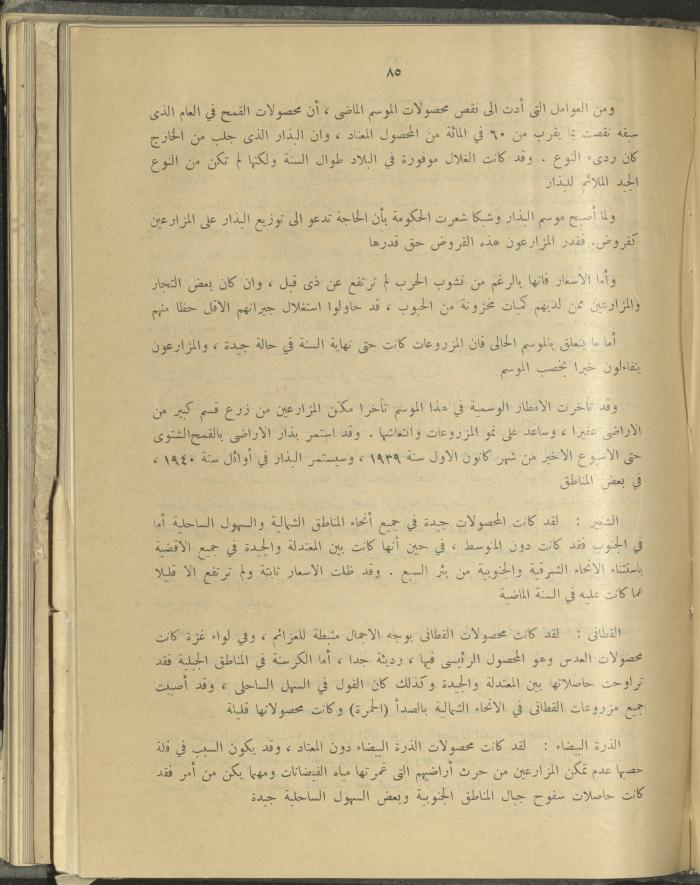 ٨٥
ومن العوامل التى أدت الى نقص محصولات الموسم الماضى ، أن محصولات القمح في العام الذى
سبقه نقصت بما يقرب من ٦٠ في المائة من المحصول المعتاد ، وان البذار الذى جلب من الخارج
كان ردىء النوع . وقد كانت الغلال موفورة في البلاد طوال السنة ولكنها لم تكن من النوع
الجيد الملائم للبذار
ولما أصبح موسم البذار وشيكا شعرت الحكومة بأن الحاجة تدعو الى توزيع البذار على المزارعين
كقروض. فقدر المزارعون هذه القروض حق قدرها
وأما الاسعار فانها بالرغم من نشوب الحرب لم ترتفع عن ذى قبل ، وان كان بعض التجار
والمزارعين ممن لديهم كميات مخزونة من الحبوب ، قد حاولوا استغلال جيرانهم الاقل حظا منهم
أما ما يتعلق بالموسم الحالى فان المزروعات كانت حتى نهاية السنة في حالة جيدة ، والمزارعون
يتفاءلون خيرا بخصب الموسم
وقد تأخرت الامطار الوسمية في هذا الموسم تأخرا مكن المزارعين من زرع قسم كبير من
الاراضى عفيرا ، وساعد على نمو المزروعات وانتعاشها . وقد استمر بذار الاراضى بالقمح الشتوى
حتى الاسبوع الاخير من شهر كانون الاول سنة ١٩٣٩ ، وسيستمر البذار في أوائل سنة ١٩٤٠ ،
في بعض المناطق
الشعير : لقد كانت المحصولات جيدة في جميع أنحاء المناطق الشمالية والسهول الساحلية أما
في الجنوب فقد كانت دون المتوسط ، في حين أنها كانت بين المعتدلة والجيدة في جميع الاقضية
باستثناء الانحاء الشرقية والجنوبية من بئر السبع . وقد ظلت الاسعار ثابتة ولم ترتفع الا قليلا
عما كانت عليه في السنة الماضية
القطانى : لقد كانت محصولات القطانى بوجه الاجمال مثبطة للعزائم ، وفي لواء غزة كانت
محصولات العدس وهو المحصول الرئيسى فيها ، رديئة جدا ، أما الكرسنة في المناطق الجبلية فقد
تراوحت حاصلاتها بين المعتدلة والجيدة وكذلك كان الفول في السهل الساحلى ، وقد أصيبت
جميع مزروعات القطانى في الانحاء الشمالية بالصدأ (الحمرة) وكانت محصولاتها قليلة
الذرة البيضاء : لقد كانت محصولات الذرة البيضاء دون المعتاد ، وقد يكون السبب في قلة
خصبها عدم تمكن المزارعين من حرث أراضيهم التى غمرتها مياه الفيضانات ومهما يكن من أمر فقد
كانت حاصلات سفوح جبال المناطق الجنوبية وبعض السهول الساحلية جيدة